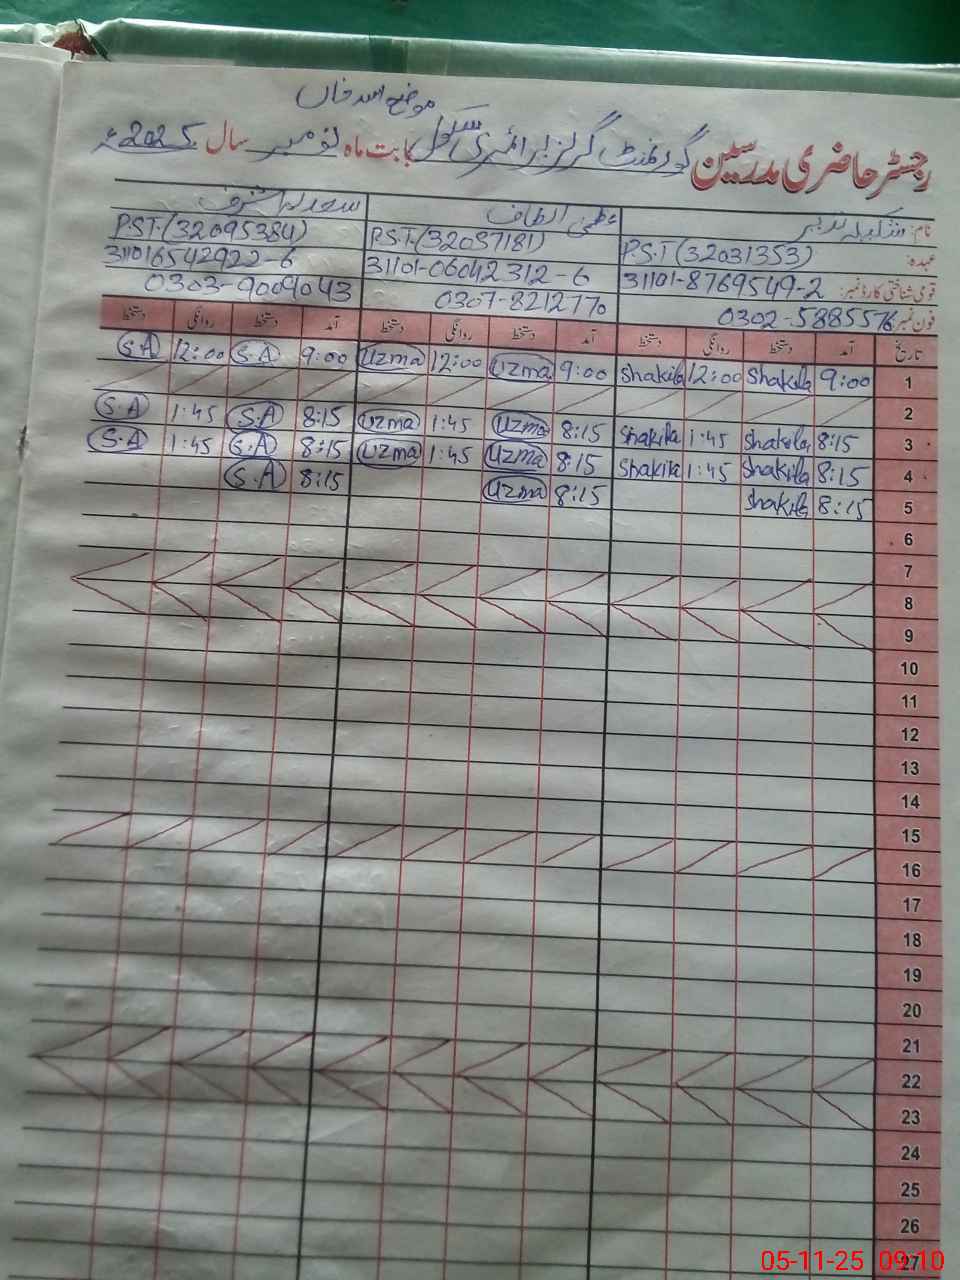 موضع اسد خاں
رجسٹر حاضری مدرسین گورنمنٹ گرلز پرائمری سکول بابت ماہ نومبر سال 2025ء
نام: شکیلہ نذیر عظمیٰ الطاف سعدیہ اشرف
عہدہ: P.S.T (32031353) P.S.T.(32037181) P.S.T.(32095384)
قومی شناختی کارڈ نمبر: 31101-8769549-2 31101-06042312-6 311016542922-6
فون نمبر 0302-5885576 0307-8212770 0303-9009043
تاریخ آمد دستخط روانگی دستخط آمد دستخط روانگی دستخط آمد دستخط روانگی دستخط
1 9:00 Shakila 12:00 Shakila 9:00 Uzma 12:00 Uzma 9:00 S.A 12:00 S.A
2
3 8:15 Shakila 1:45 Shakila 8:15 Uzma 1:45 Uzma 8:15 S.A 1:45 S.A
4 8:15 Shakila 1:45 Shakila 8:15 Uzma 1:45 Uzma 8:15 S.A 1:45 S.A
5 8:15 Shakila 8:15 Uzma 8:15 S.A
6
7
8
9
10
11
12
13
14
15
16
17
18
19
20
21
22
23
24
25
26
27
05-11-25 09:10